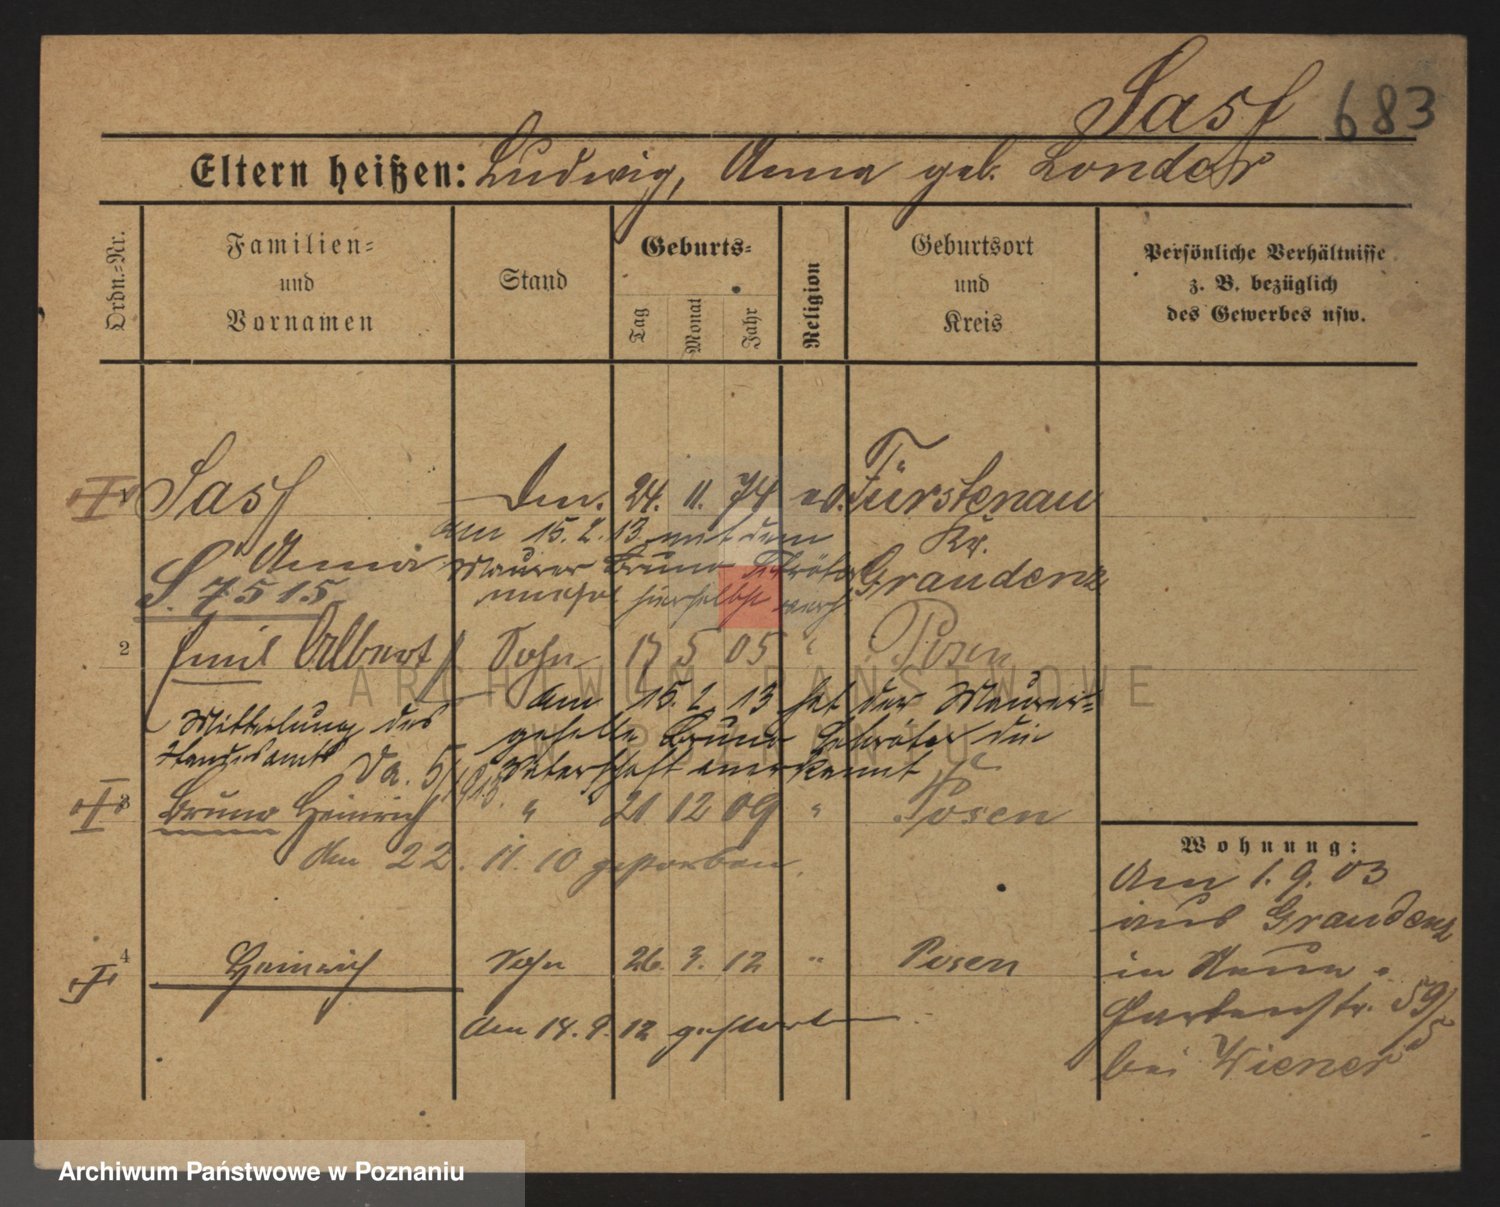 Sass 683
Eltern heißen: Ludwig, Anna geb. Londer
Ordn.=Nr.
Familien=
und
Vornamen
Stand
Geburts=
Tag
Monat
Jahr
Religion
Geburtsort
und
Kreis
Persönliche Verhältnisse
z. B. bezüglich
des Gewerbes usw.
Sass Dm. 24. 11. 74 ev. Fürstenau
Anna Kr.
Graudenz
am 15. 2. 13 mit dem
Maurer Bruno Schröter
hierselbst
S. 7515
2 Emil Albert Sohn 17 5 05 " Posen
Mitteilung des
Standesamts
Am 15. 2. 13 hat der Maurer=
geselle Bruno Schröter die
Vaterschaft anerkannt
3 Bruno Heinrich " 21 12 09 " Posen
den 22. 11. 10 gestorben.
4 Heinrich Sohn 26. 3. 12 " Posen
den 14. 9. 12 gestorben.
Wohnung:
Am 1. 9. 03
aus Graudenz
in Neue
Gartenstr. 59/5
bei Wiener
ARCHIWUM PAŃSTWOWE
W POZNANIU
Archiwum Państwowe w Poznaniu